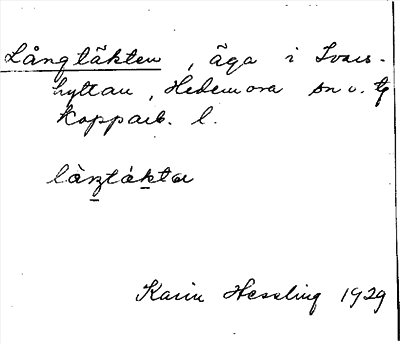 Långtäkten, äga i Ivars-
hyttan, Hedemora sn o. tg
Kopparb. l.
Karin Hessling 1929